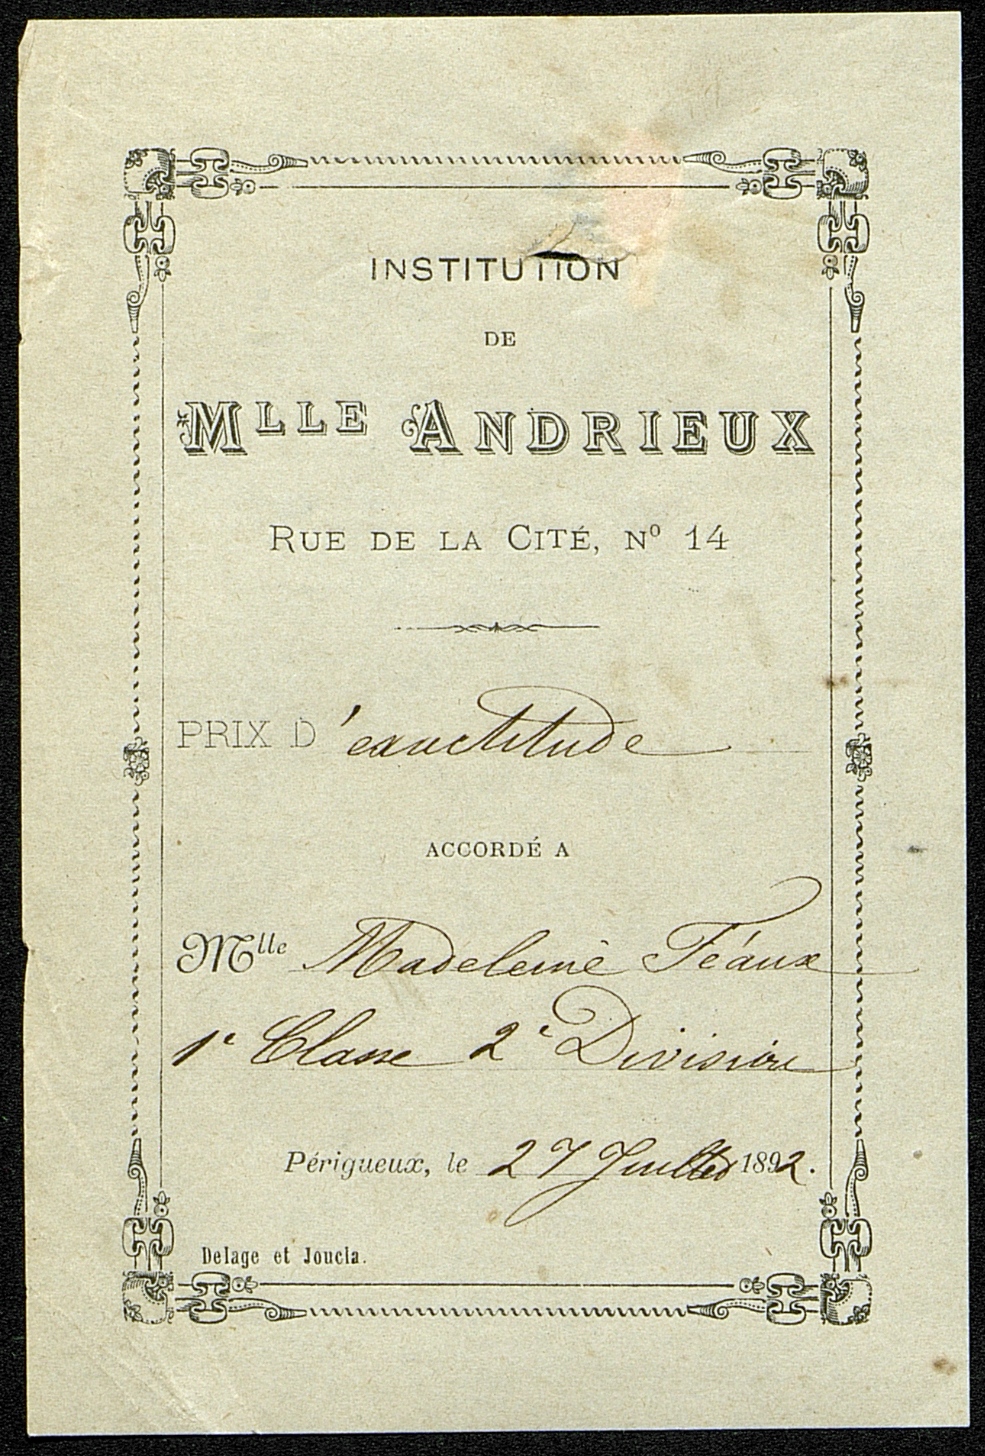 INSTITUTION
DE
MLLE ANDRIEUX
RUE DE LA CITÉ, Nº 14
PRIX D'exactitude
ACCORDÉ A
Mlle Madeleine Féaux
1e Classe 2e Division
Périgueux, le 27 Juillet 1892.
Delage et Joucla.